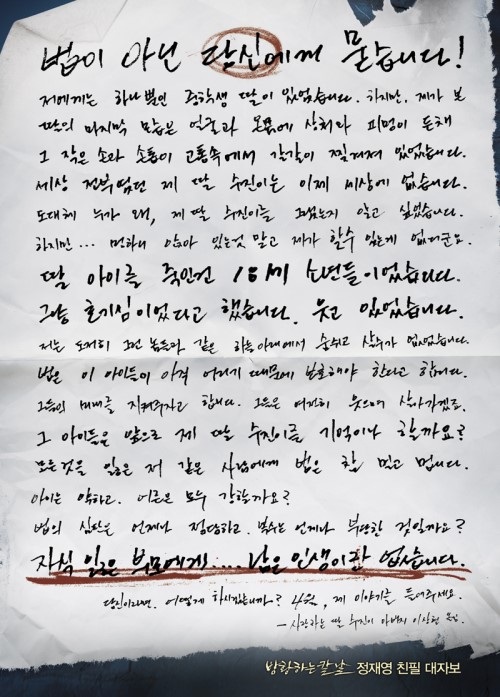 법이 아닌 당신에게 묻습니다!
저에게는 하나 뿐인 중학생 딸이 있었습니다. 하지만, 제가 본
딸의 마지막 모습은 얼굴과 온몸에 상처와 피멍이 든채
그 작은 손과 손톱이 고통속에서 갈갈이 찢겨져 있었습니다.
세상 전부였던 제 딸 수진이는 이제 세상에 없습니다.
도대체 누가 왜, 제 딸 수진이를 그랬는지 알고 싶었습니다.
하지만... 멍하니 앉아 있는것 말고 제가 할수 있는게 없더군요.
딸 아이를 죽인건 18세 소년들이었습니다.
그냥 호기심이었다고 했습니다. 웃고 있었습니다.
저는 도저히 그런 놈들과 같은 하늘아래에서 숨쉬고 살수가 없었습니다.
법은 이 아이들이 아직 어리기 때문에 보호해야 한다고 합니다.
그들의 미래를 지켜주자고 합니다. 그들은 여전히 웃으며 살아가겠죠.
그 아이들은 앞으로 제 딸 수진이를 기억이나 할까요?
모든것을 잃은 저 같은 사람에게 법은 참 멀고 멉니다.
아이는 약하고, 어른은 모두 강할까요?
법의 심판은 언제나 정당하고, 복수는 언제나 부당한 것일까요?
자식 잃은 부모에게.... 남은 인생이란 없습니다.
당신이라면, 어떻게 하시겠습니까? 4월, 제 이야기를 들어주세요.
- 사랑하는 딸 수진이 아버지 이상현 올림.
방황하는칼날 정재영 친필 대자보